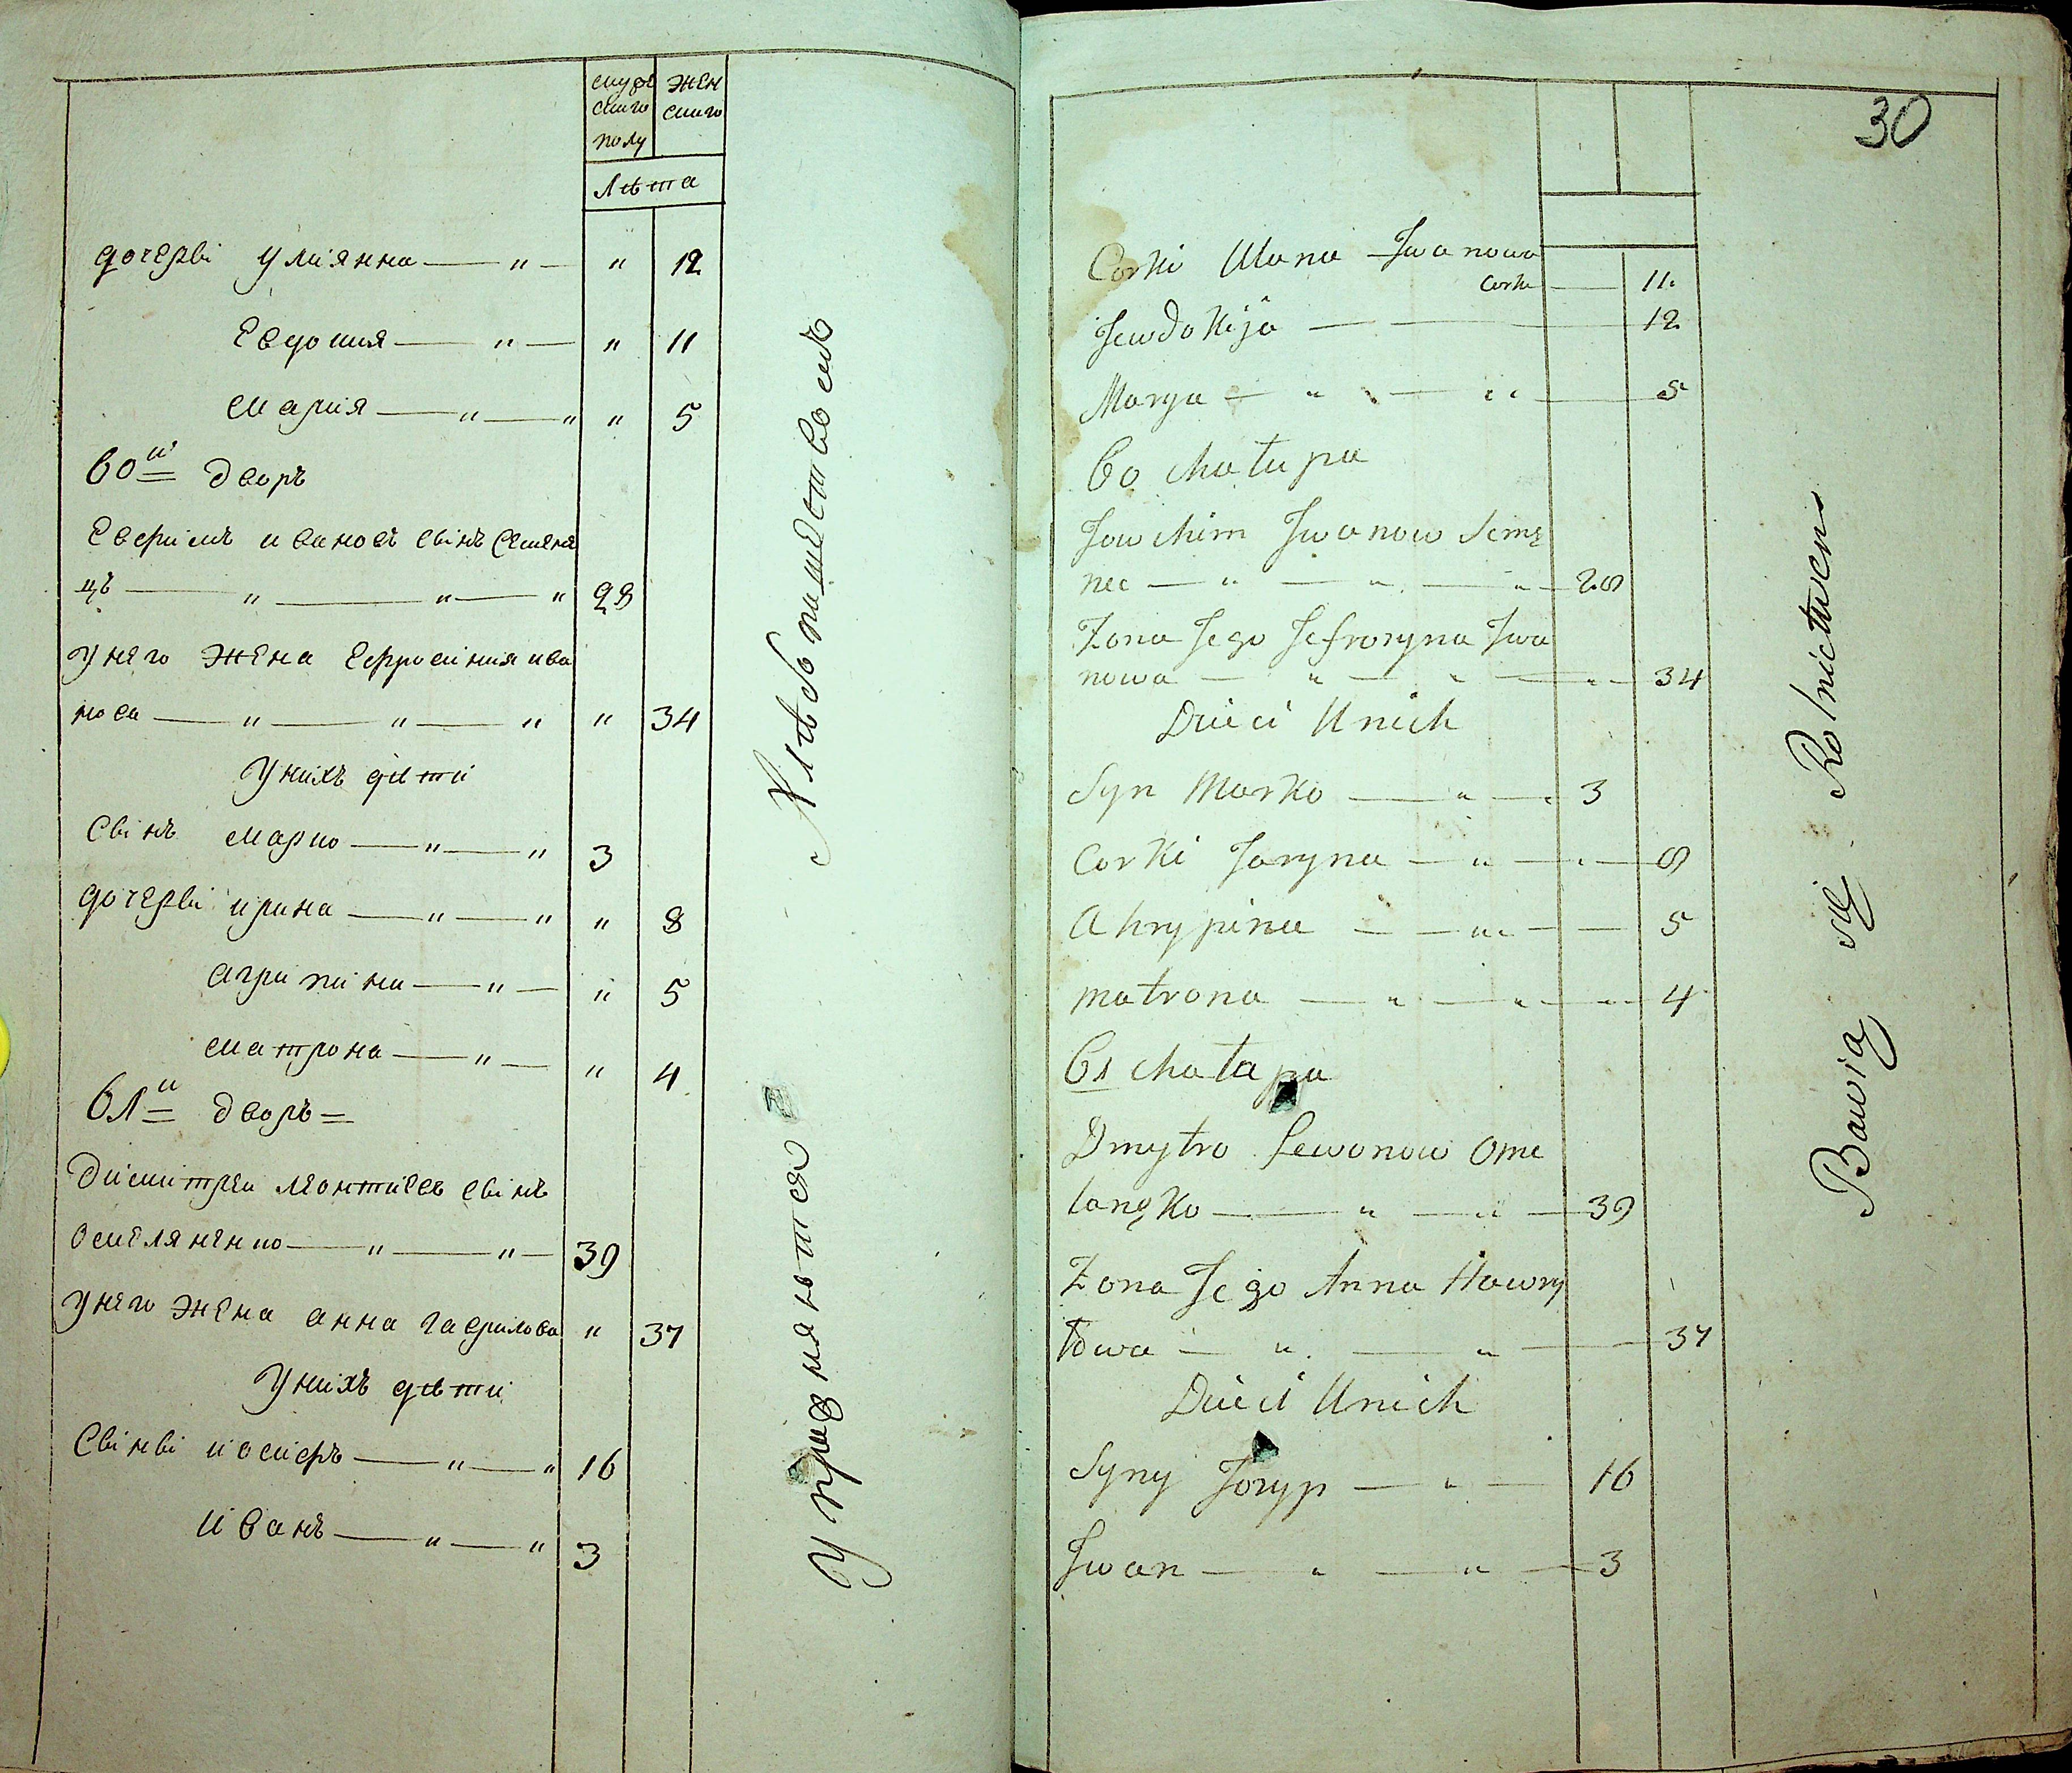 мужескаго полу
женскаго
Лѣта
дочерьі улиянна — " — " 12
Евдокия — " — " 11
мария — " — " " 5
60й дворъ
Евфимъ ивановъ сьінъ Семене
цъ — " — " — " 28
У него жена Ефросиния ива
нова — " — " — " " 34
У нихъ дѣти
Сьінъ марко — " — " 3
дочерьі ирина — " — " " 8
агрипина — " — " 5
матрона — " — " 4
61й дворъ =
димитреи леонтиевъ сьінъ
омеляненко — " — " — 39
У него жена анна гаврилова " 37
У нихъ дѣти
Сьіньі иосифъ — " — " 16
иванъ — " — " 3
Упражняются Хлѣбопашествомъ
30
Corki Ulana Iwanowa
Corka — 11.
Jewdokija — — 12
Marya — " — " — 5
60 chałupa
Jowchim Iwanow Semę
nec — " — " — " — 28
Zona Jego Jefrozyna Iwa
nowa — " — " — " — 34
Dzieci Unich
Syn Marko — " — 3
Corki Jaryna — " — " — 8
Ahrypina — — " — — 5
matrona — " — " — " — 4
61 chałapa
Dmytro Lewonow Ome
lanęko — " — " — 39
Zona Jego Anna Hawry
łowa — " — " — 37
Dzieci Unich
Syny Jozyp — " — 16
Iwan — " — " — 3
Bawią się Rolnictwem